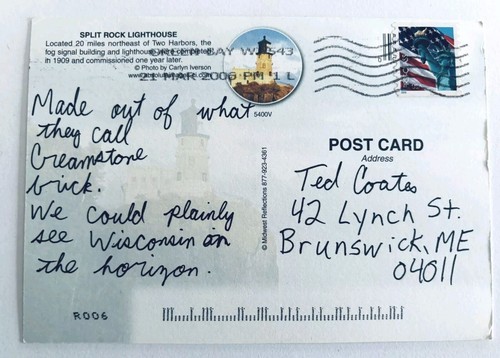 SPLIT ROCK LIGHTHOUSE
Located 20 miles northeast of Two Harbors, the
fog signal building and lighthouse were completed
in 1909 and commissioned one year later.
© Photo by Carlyn Iverson
GREEN BAY WI 543
21 MAR 2006 PM 1 L
5400V
Made out of what
they call
Creamstone
brick.
We could plainly
see Wisconsin on
the horizon.
R006
© Midwest Reflections 877-923-4361
POST CARD
Address
Ted Coates
42 Lynch St.
Brunswick, ME
04011